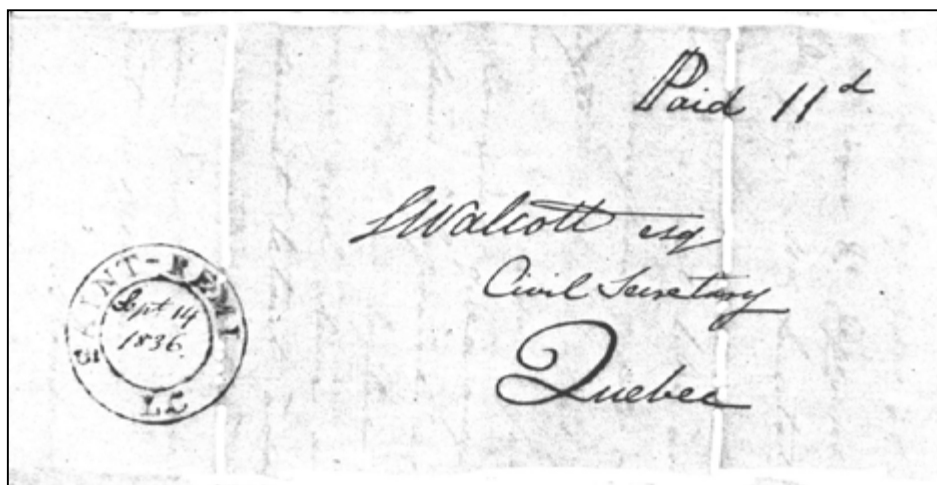 Paid 11d
SWalcott esq
Civil Secretary
Quebec
SAINT-REMI
Sept 14
1836
LC